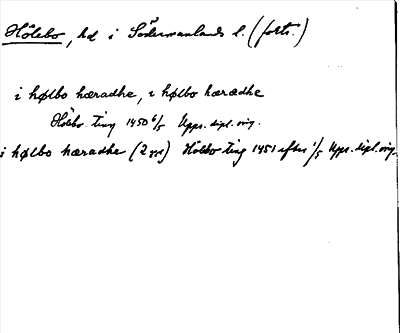 Hölebo, hd i Södermanlands l. (forts.)
i hølbo hæradhe, i hølbo hæradhe
Hölebo ting 1450 6/5 Upps. dipl. orig.
i hølbo hæradhe (2 ggr) Hölebo ting 1451 efter 1/5 Upps. dipl. orig.